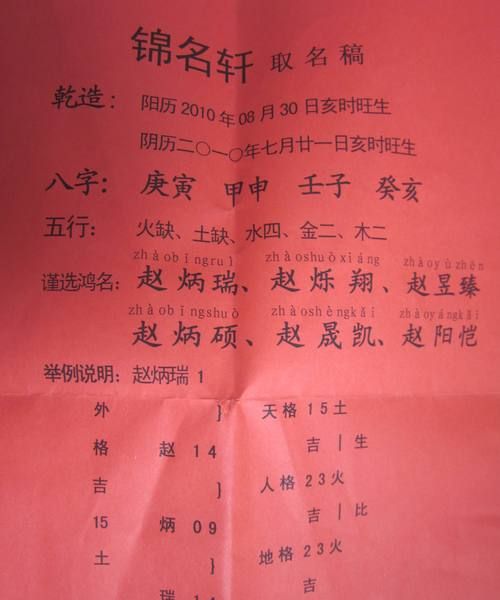 锦名轩 取名稿
乾造： 阳历 2010 年 08 月 30 日亥时旺生
阴历二〇一〇年七月廿一日亥时旺生
八字： 庚寅 甲申 壬子 癸亥
五行： 火缺、土缺、水四、金二、木二
zhàobǐngruì zhàoshuòxiáng zhàoyùzhēn
谨选鸿名： 赵炳瑞、赵烁翔、赵昱臻
zhàobǐngshuò zhàoshèngkǎi zhàoyángkǎi
赵炳硕、赵晟凯、赵阳恺
举例说明：赵炳瑞 1
外 } 天格 15 土
格 赵 14 吉 | 生
吉 } 人格 23 火
15 炳 09 吉 | 比
土 } 地格 23 火
瑞 14 吉